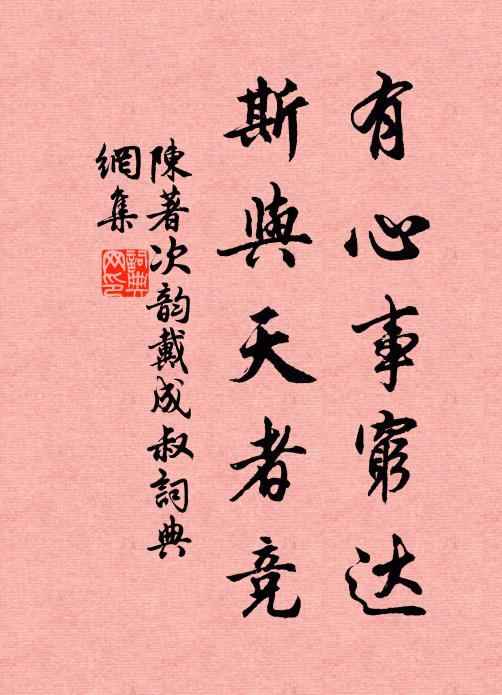 有心事窮达
斯與天者竞
陳著次韵戴成叔詞典
網集
詞典网印